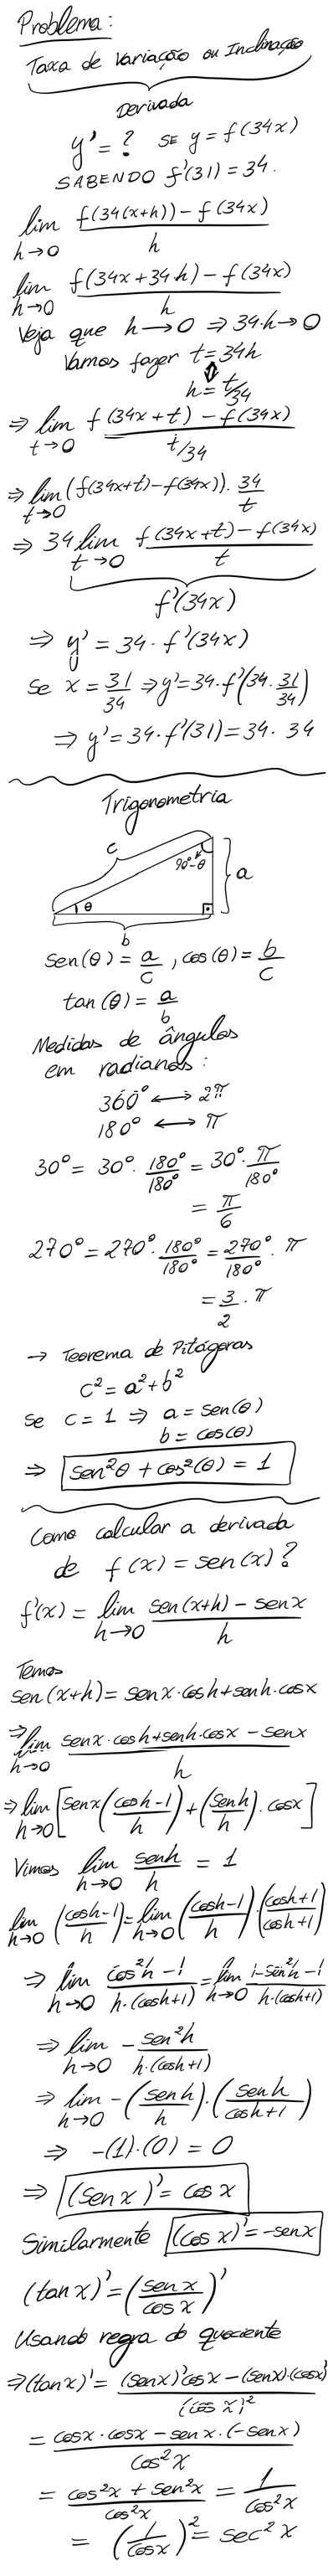 Problema:
Taxa de Variação ou Inclinação
Derivada
y' = ? SE y = f(34x)
SABENDO f'(31) = 34.
lim h→0 (f(34(x+h)) - f(34x))/h
lim h→0 (f(34x+34·h) - f(34x))/h
Veja que h→0 ⇒ 34·h→0
Vamos fazer t = 34h
⇕
h = t/34
⇒ lim t→0 (f(34x+t) - f(34x))/(t/34)
⇒ lim t→0 (f(34x+t) - f(34x)) · 34/t
⇒ 34 lim t→0 (f(34x+t) - f(34x))/t
f'(34x)
⇒ y' = 34 · f'(34x)
Se x = 31/34 ⇒ y' = 34·f'(34·31/34)
⇒ y' = 34·f'(31) = 34·34
Trigonometria
c
90°-θ
a
θ
b
sen(θ) = a/c, cos(θ) = b/c
tan(θ) = a/b
Medidas de ângulos
em radianos:
360° ↔ 2π
180° ↔ π
30° = 30°·180°/180° = 30°·π/180°
= π/6
270° = 270°·180°/180° = 270°/180°·π
= 3/2·π
→ Teorema de Pitágoras
c² = a² + b²
Se c = 1 ⇒ a = sen(θ)
b = cos(θ)
⇒ sen²θ + cos²(θ) = 1
Como calcular a derivada
de f(x) = sen(x)?
f'(x) = lim h→0 (sen(x+h) - senx)/h
Temos
sen(x+h) = senx·cosh + senh·cosx
⇒ lim h→0 (senx·cosh + senh·cosx - senx)/h
⇒ lim h→0 [senx((cosh-1)/h) + (senh/h)·cosx]
Vimos lim h→0 senh/h = 1
lim h→0 ((cosh-1)/h) = lim h→0 ((cosh-1)/h)·((cosh+1)/(cosh+1))
⇒ lim h→0 (cos²h - 1)/(h·(cosh+1)) = lim h→0 (1-sen²h-1)/(h·(cosh+1))
⇒ lim h→0 -sen²h/(h·(cosh+1))
⇒ lim h→0 -(senh/h)·(senh/(cosh+1))
⇒ -(1)·(0) = 0
⇒ (senx)' = cosx
Similarmente (cosx)' = -senx
(tanx)' = (senx/cosx)'
Usando regra do quociente
⇒ (tanx)' = ((senx)'cosx - (senx)·(cosx)')/(cosx)²
= (cosx·cosx - senx·(-senx))/cos²x
= (cos²x + sen²x)/cos²x = 1/cos²x
= (1/cosx)² = sec²x